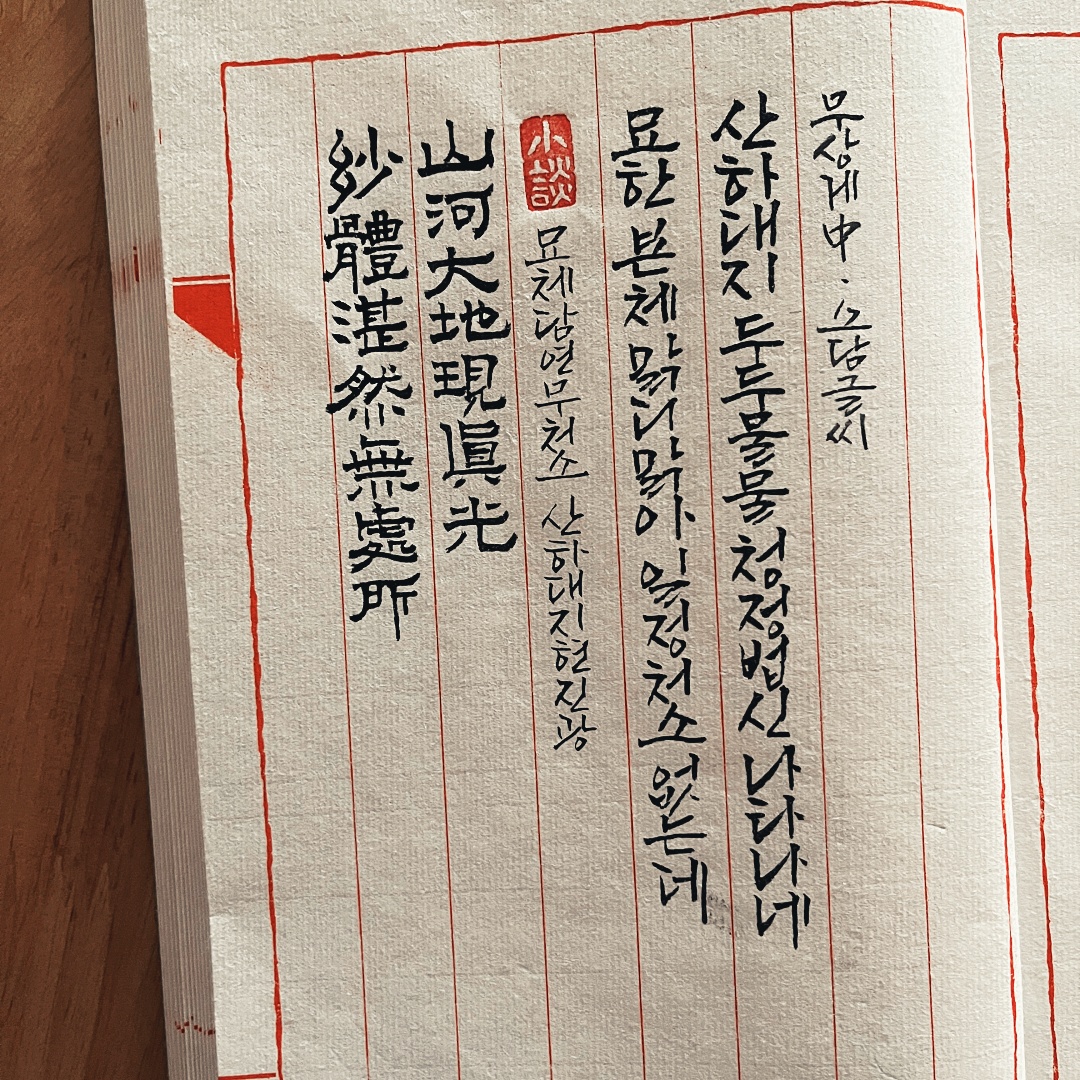 玅體湛然無處所
山河大地現眞光
小談
묘체담연무처소 산하대지현진광
묘한 본체 맑디맑아 일정처소 없는데
산하대지 두두물물 청정법신 나타나네
무상게中·소담글씨